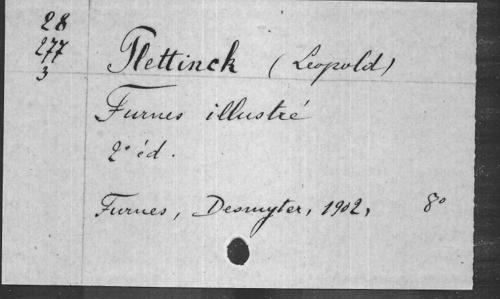 28
277
3
Plettinck (Leopold)
Furnes illustré
2e éd.
Furnes, Desmyter, 1902, 8o